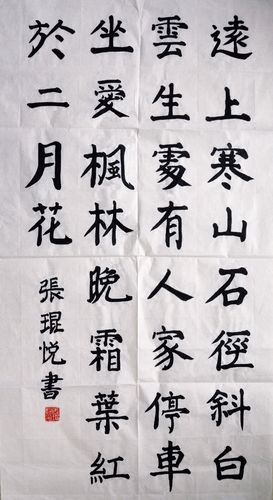 遠上寒山石徑斜白
雲生處有人家停車
坐愛楓林晚霜葉紅
於二月花
張琨悦書